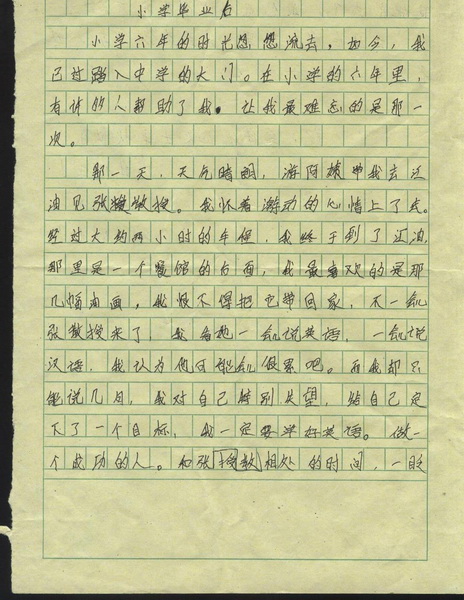 小学毕业后
小学六年的时光悠悠流去，如今，我
已过踏入中学的大门。在小学的六年里，
有许多人帮助了我。让我最难忘的是那一
次。
那一天，天气晴朗，海阿姨带我去江
油见张教授。我怀着激动的心情上了车。
经过大约两小时的车程，我终于到了江油，
那里是一个宾馆的后面，我最喜欢的是那
几幅油画，我恨不得把它带回家，不一会儿
张教授来了，我看他一会儿说英语，一会儿说
汉语，我认为他可能会很累吧。而我却只
能说几句，我对自己特别失望，给自己定
下了一个目标，我一定要学好英语。做一
个成功的人。和张授教相处的时间，一眨